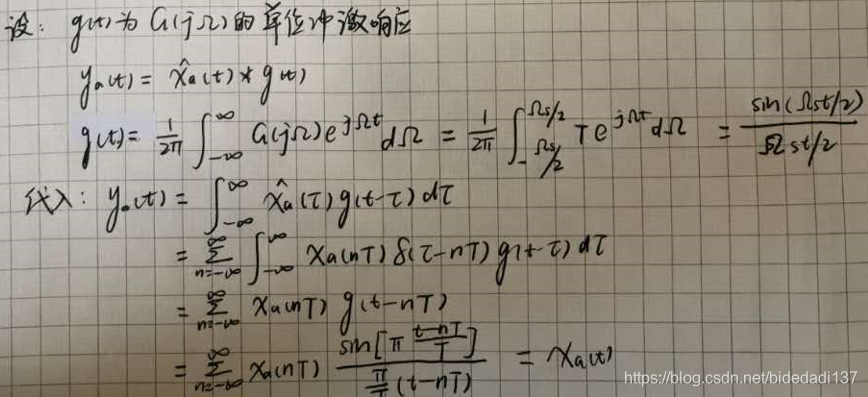 设: g(t)为 G(jΩ)的单位冲激响应
y_a(t) = x̂_a(t) * g(t)
g(t) = 1/2π ∫_{-∞}^{∞} G(jΩ)e^{jΩt}dΩ = 1/2π ∫_{-Ωs/2}^{Ωs/2} T e^{jΩt}dΩ = sin(Ωst/2) / Ωst/2
代入: y_a(t) = ∫_{-∞}^{∞} x̂_a(τ)g(t-τ)dτ
= Σ_{n=-∞}^{∞} ∫_{-∞}^{∞} x_a(nT) δ(τ-nT) g(t-τ) dτ
= Σ_{n=-∞}^{∞} x_a(nT) g(t-nT)
= Σ_{n=-∞}^{∞} x_a(nT) sin[π (t-nT)/T] / π/T (t-nT) = x_a(t)
https://blog.csdn.net/bidedadi137